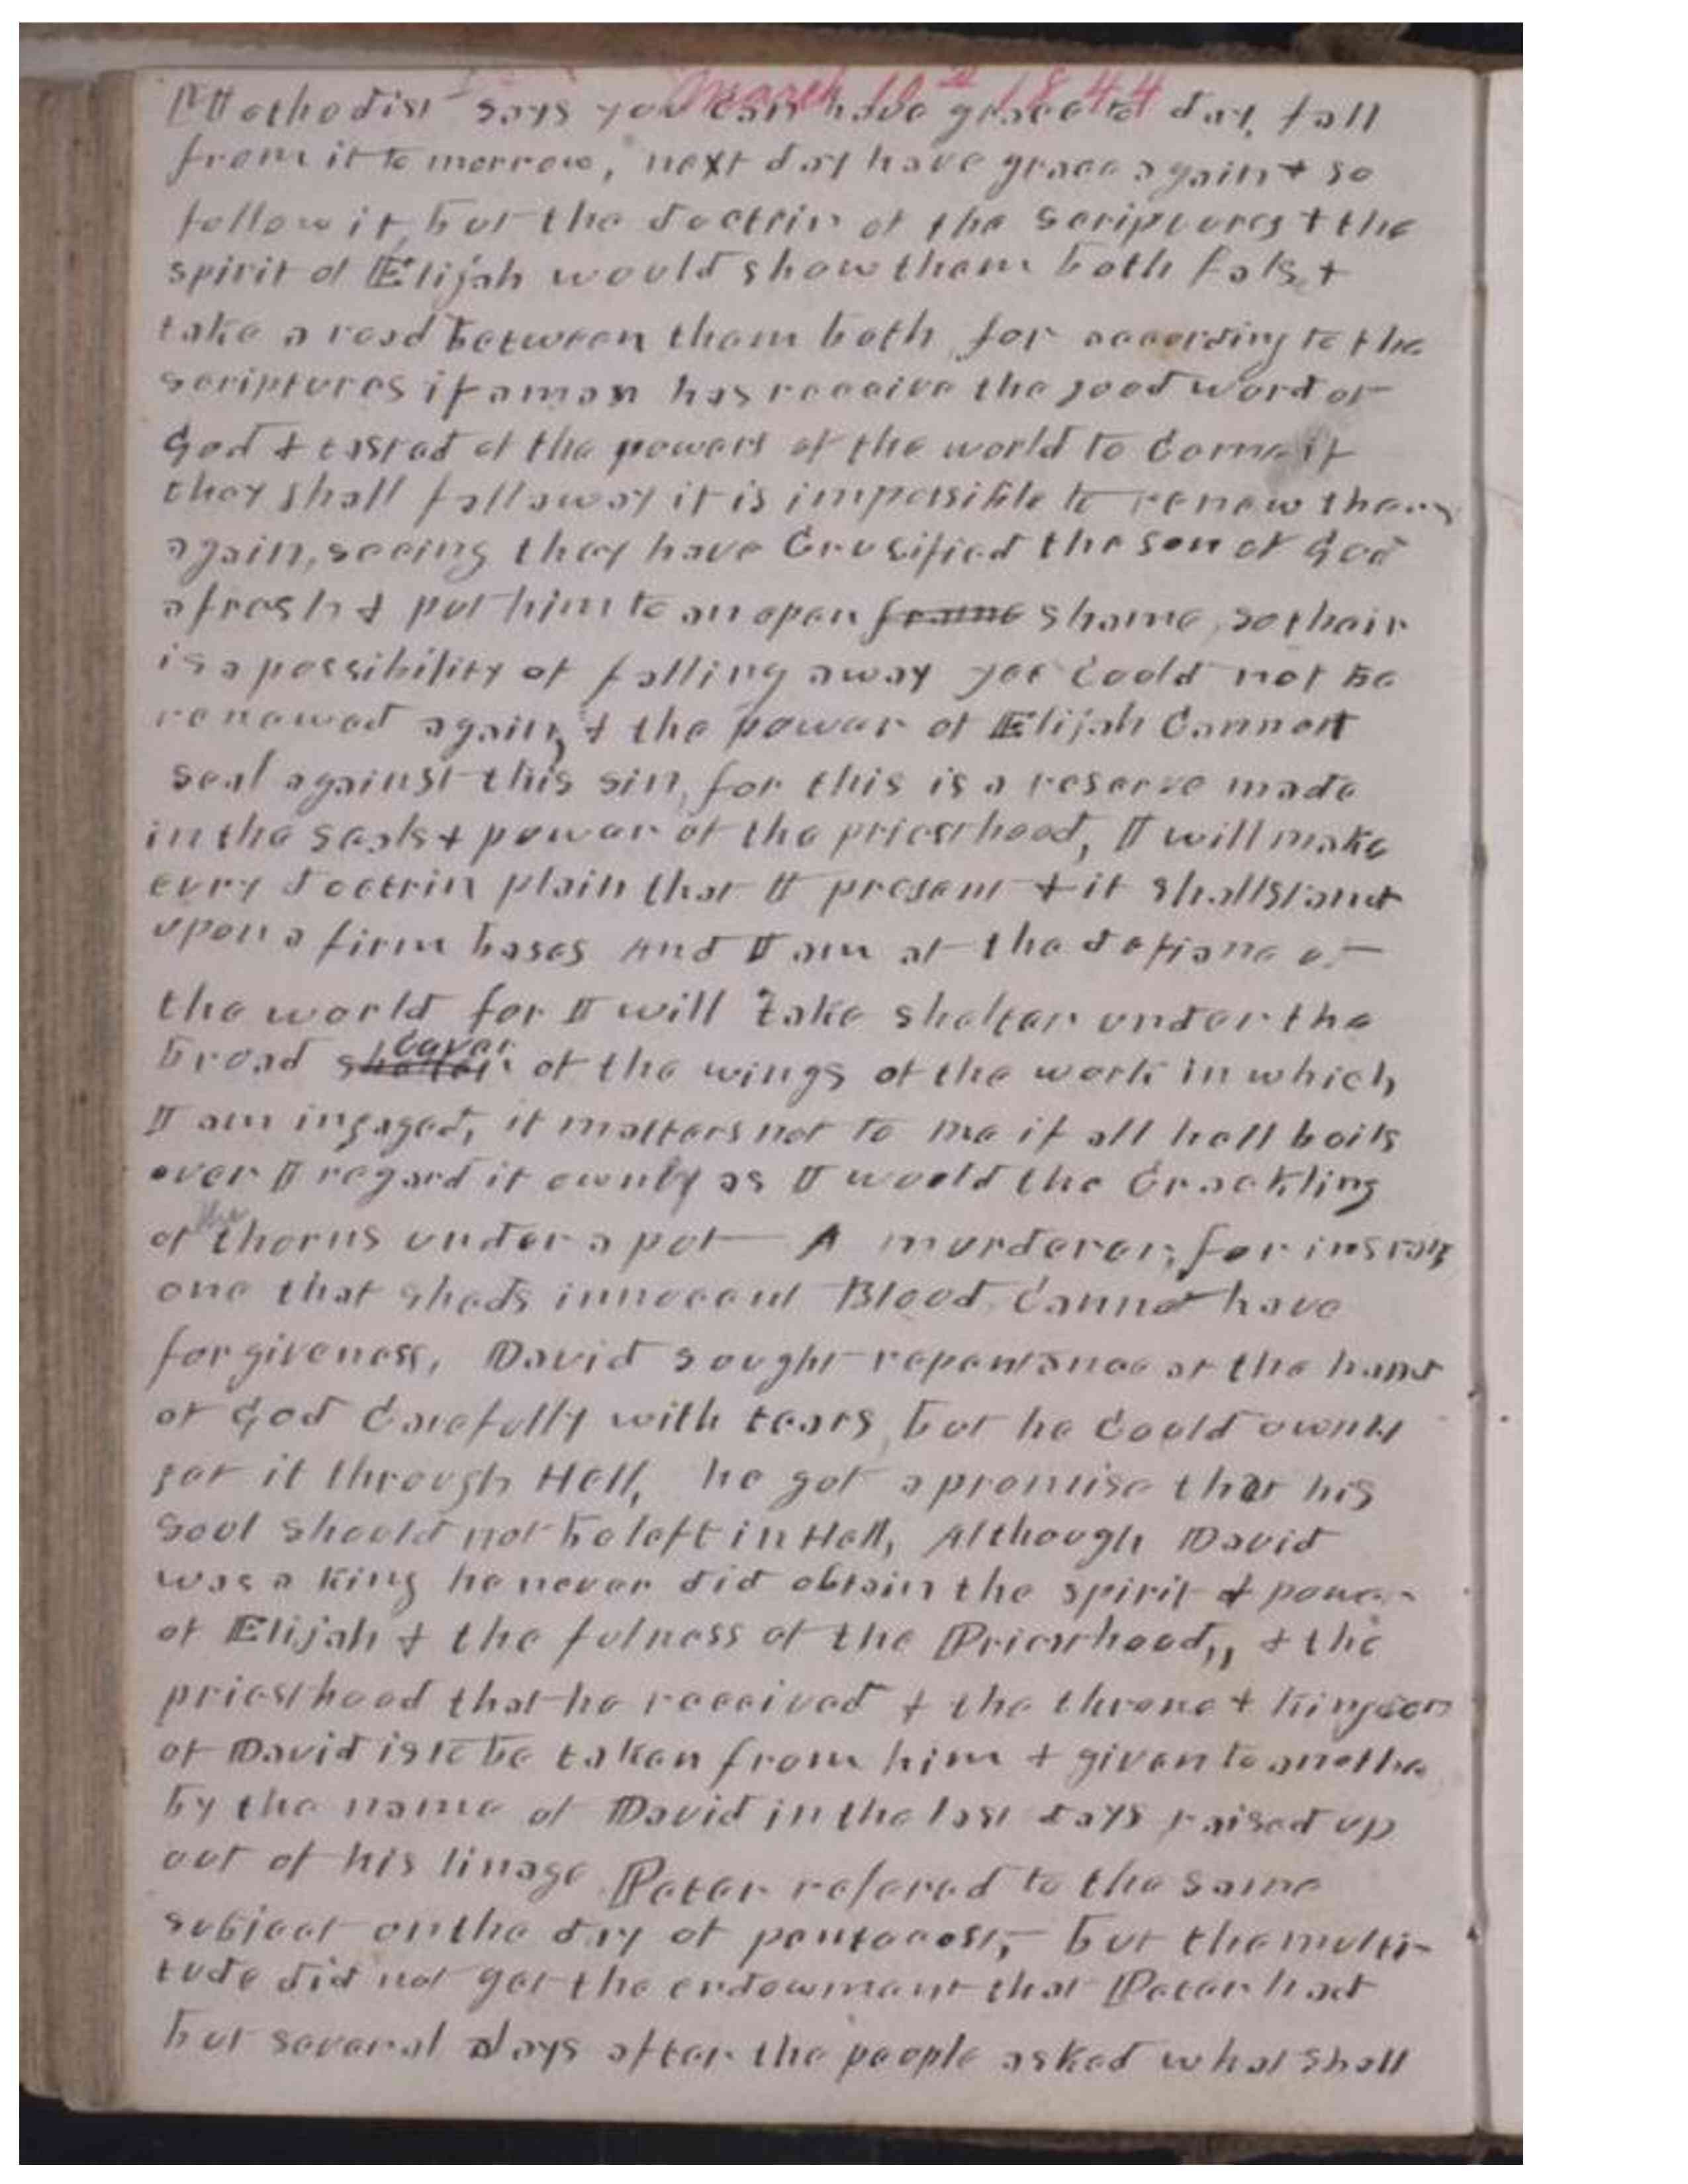 March 10th 1844
Methodist says you can have grace to day, fall
from it to morrow, next day have grace again & so
follow it, but the doctrin of the scriptures & the
spirit of Elijah would show them both fals, &
take a road between them both for according to the
scriptures if a man has receive the good word of
God & tasted of the powers of the world to come if
they shall fall away it is impossible to renew them
again, seeing they have Crusified the son of God
afresh & put him to an open frame shame, so thair
is a possibility of falling away yet could not be
renewed again, & the power of Elijah Cannot
seal against this sin, for this is a reserve made
in the seals & power of the priesthood, I will make
evry doctrin plain that I present & it shall stand
upon a firm bases And I am at the defiance of
the world for I will take shelter under the
broad shelter Cover of the wings of the work in which
I am ingaged, it matters not to me if all hell boils
over I regard it ownly as I would the Crackling
of the thorns under a pot — A murderer, for instan
one that sheds innocent Blood Cannot have
forgiveness, David sought repentance at the hand
of God Carefully with tears, but he Could ownly
get it through Hell, he got a promise that his
Soul should not be left in Hell, Although David
was a King he never did obtain the spirit & power
of Elijah & the fulness of the Priesthood,, & the
priesthood that he received & the throne & kingdom
of David is to be taken from him & given to anothe
by the name of David in the last days raised up
out of his linage Peter refered to the same
subject on the day of pentacost, but the multi-
tude did not get the endowment that Peter had
but several days after the people asked what shall